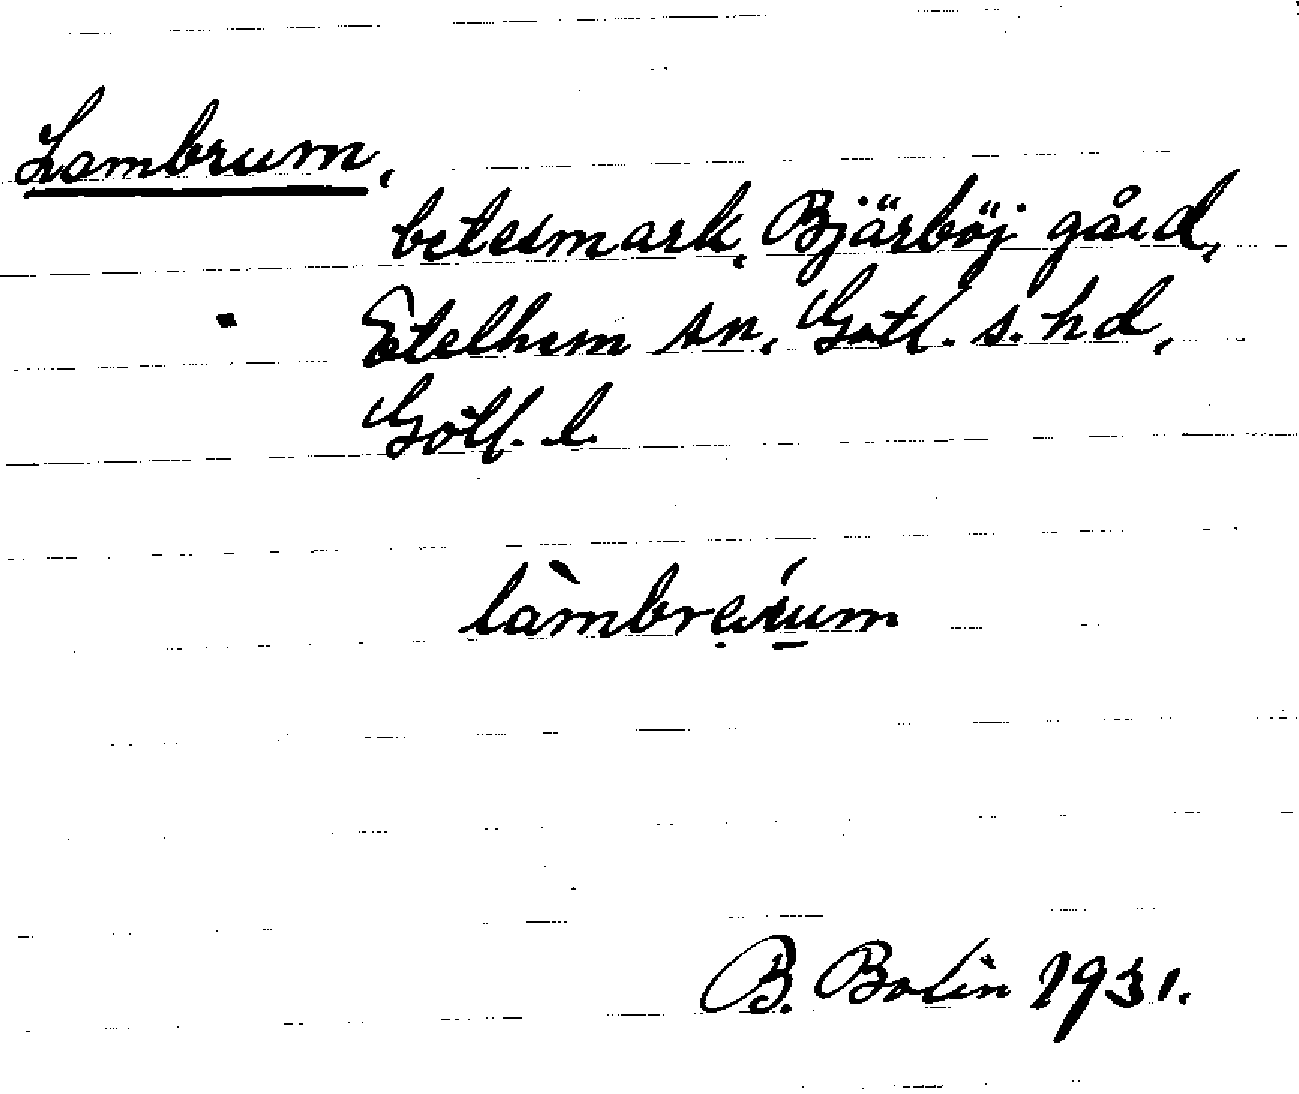 Lambrum,
betesmark, Bjärböj gård,
Etelhem sn, Gotl. s. hd,
Gotl. l.
B. Bolin 1931.